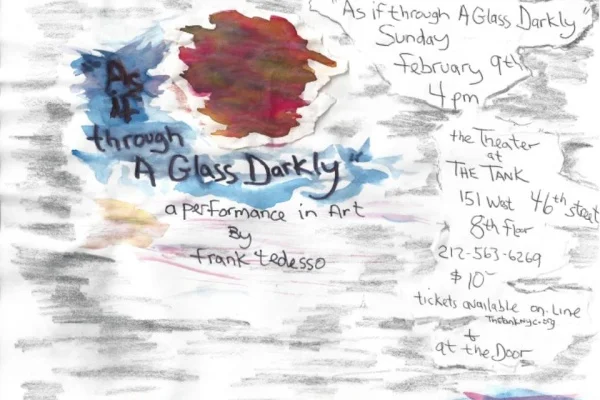 As
if
through
A Glass Darkly"
a performance in Art
By
frank tedesso
"As if through A Glass Darkly"
Sunday
february 9th
4 pm
the Theater
at
THE TANK
151 West 46th street
8th floor
212-563-6269
$10
tickets available on-Line
Thetanknyc.org
+
at the Door